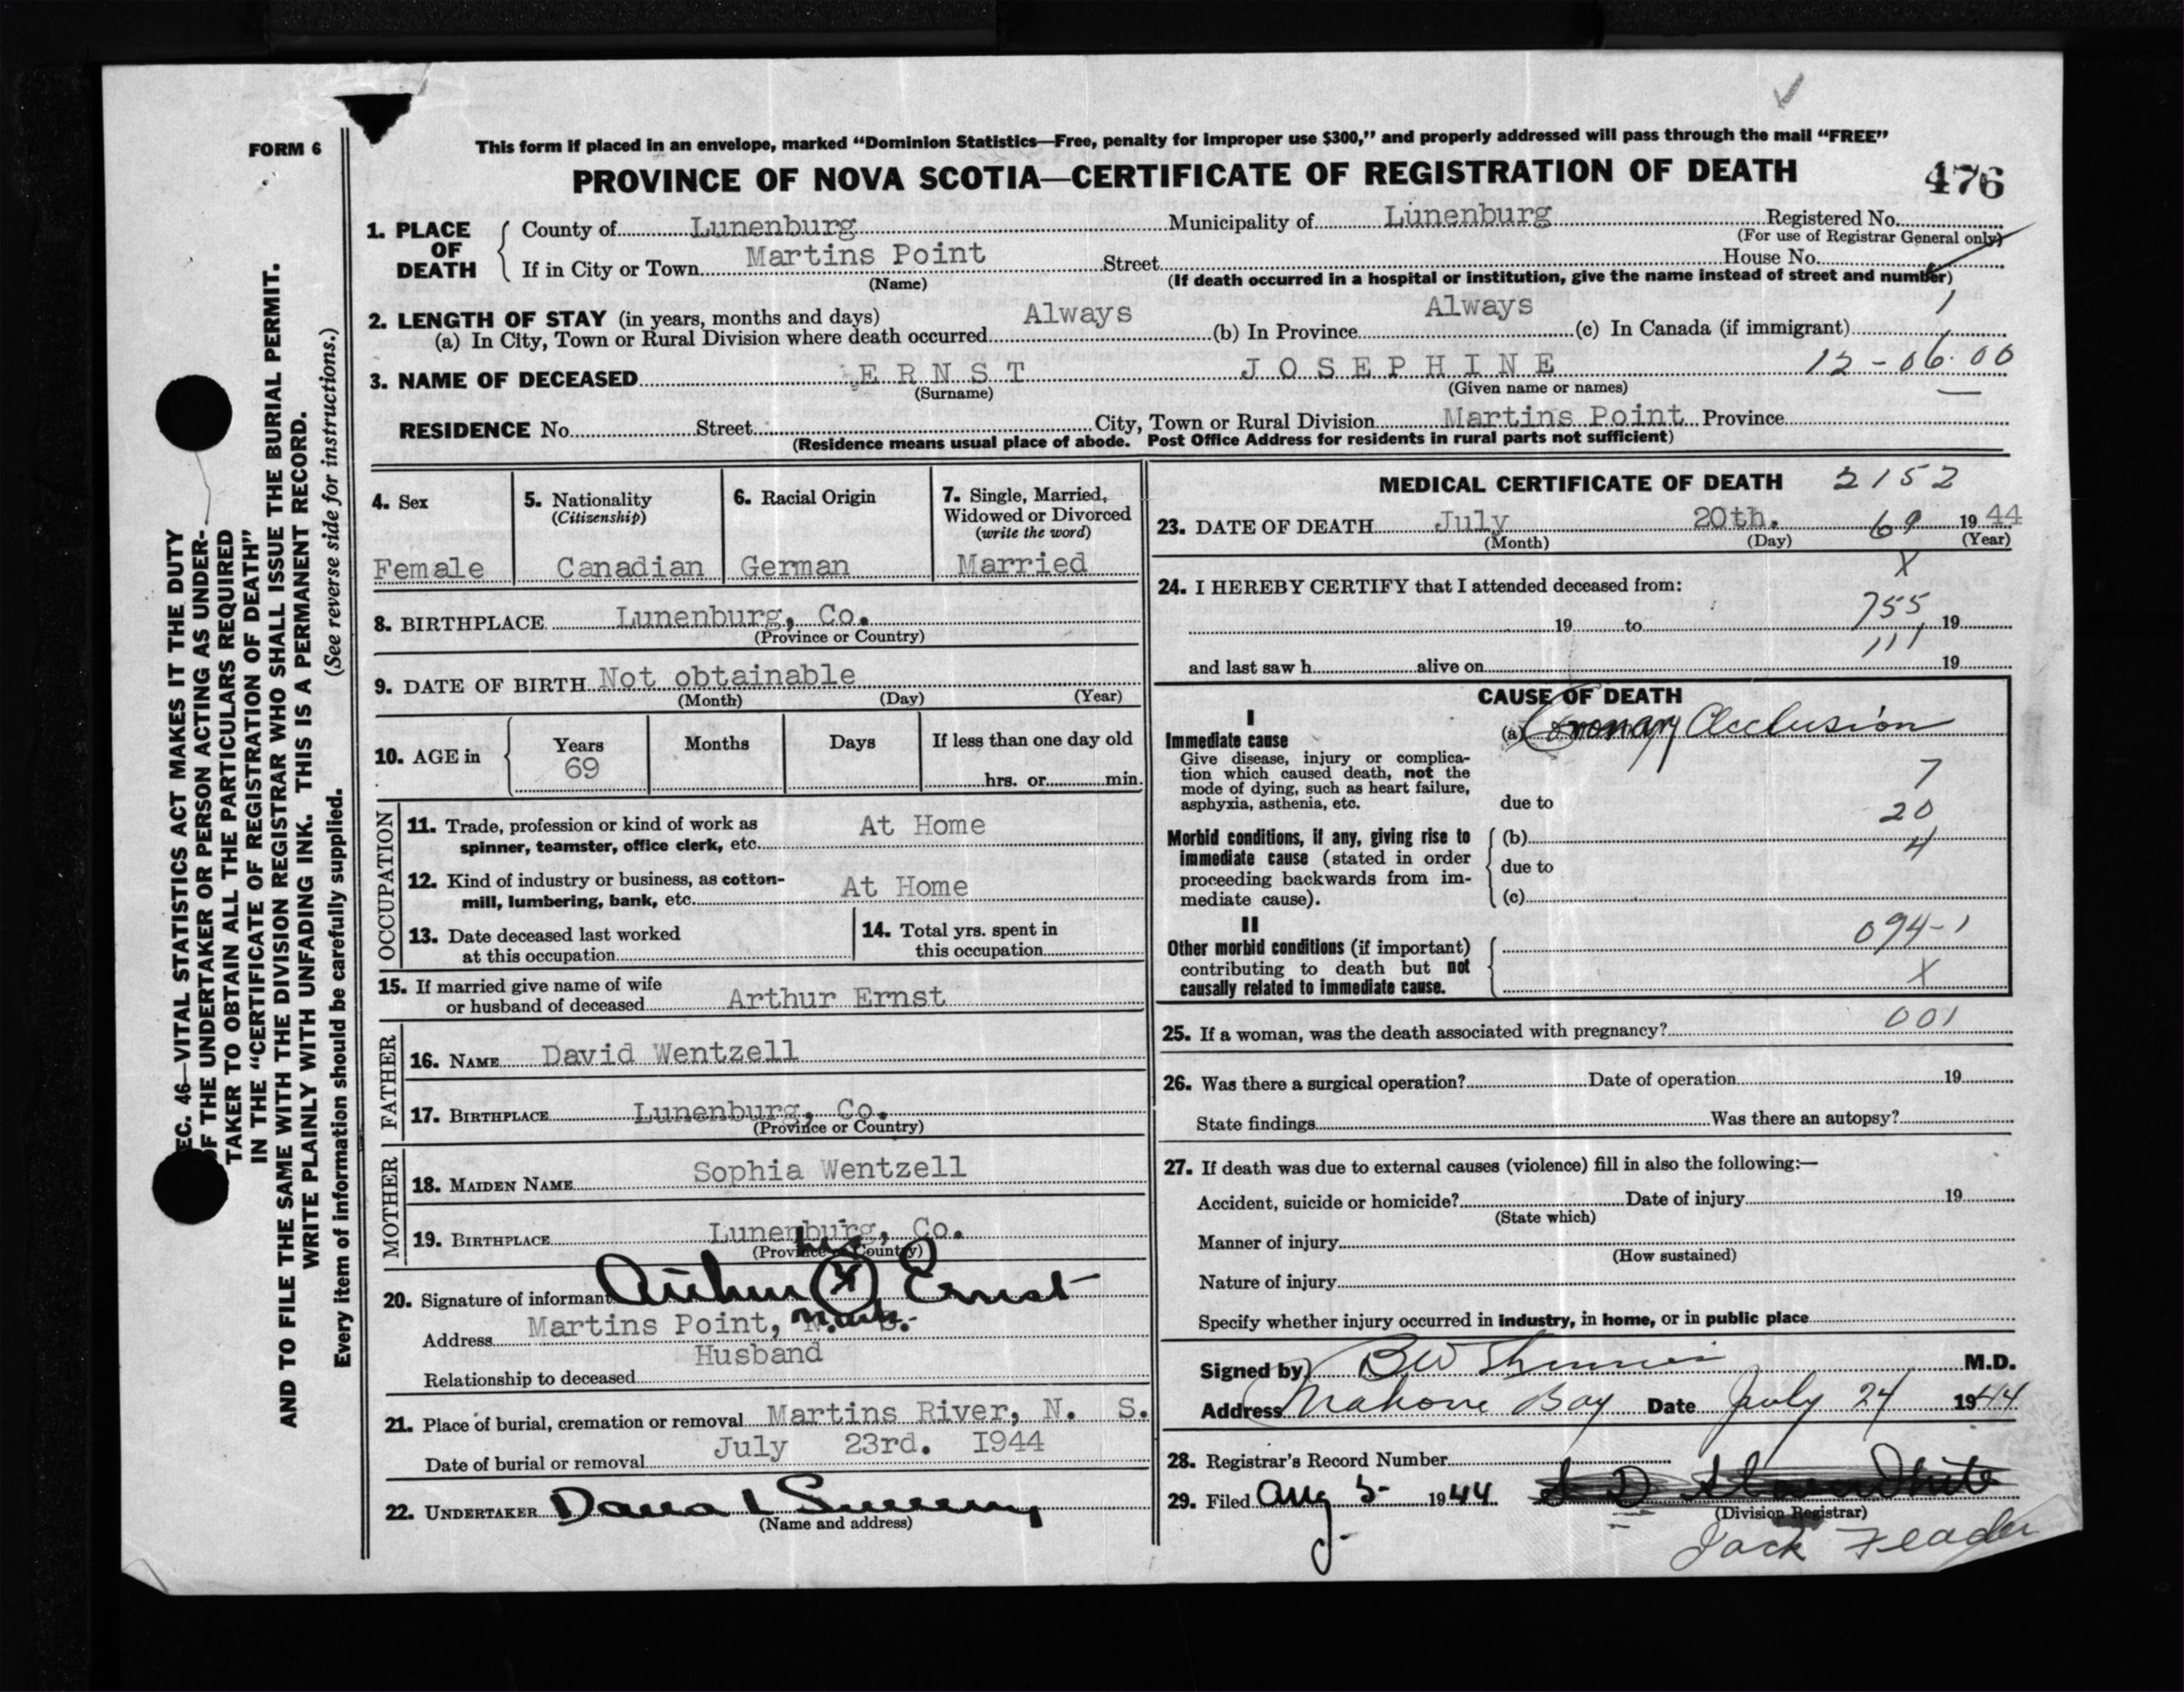 FORM 6
This form if placed in an envelope, marked "Dominion Statistics—Free, penalty for improper use $300," and properly addressed will pass through the mail "FREE"
PROVINCE OF NOVA SCOTIA—CERTIFICATE OF REGISTRATION OF DEATH 476
1. PLACE OF DEATH County of Lunenburg Municipality of Lunenburg Registered No.
(For use of Registrar General only)
If in City or Town Martins Point Street House No.
(Name) (If death occurred in a hospital or institution, give the name instead of street and number)
2. LENGTH OF STAY (in years, months and days)
(a) In City, Town or Rural Division where death occurred Always (b) In Province Always (c) In Canada (if immigrant) 1
3. NAME OF DECEASED ERNST JOSEPHINE 12-06.00
(Surname) (Given name or names)
RESIDENCE No. Street City, Town or Rural Division Martins Point Province
(Residence means usual place of abode. Post Office Address for residents in rural parts not sufficient)
4. Sex
Female
5. Nationality
(Citizenship)
Canadian
6. Racial Origin
German
7. Single, Married,
Widowed or Divorced
(write the word)
Married
8. BIRTHPLACE Lunenburg, Co.
(Province or Country)
9. DATE OF BIRTH Not obtainable
(Month) (Day) (Year)
10. AGE in Years Months Days If less than one day old
69 hrs. or min.
OCCUPATION
11. Trade, profession or kind of work as
spinner, teamster, office clerk, etc. At Home
12. Kind of industry or business, as cotton-
mill, lumbering, bank, etc. At Home
13. Date deceased last worked
at this occupation
14. Total yrs. spent in
this occupation
15. If married give name of wife
or husband of deceased Arthur Ernst
FATHER
16. NAME David Wentzell
17. BIRTHPLACE Lunenburg, Co.
(Province or Country)
MOTHER
18. MAIDEN NAME Sophia Wentzell
19. BIRTHPLACE Lunenburg, Co.
(Province or Country)
his
20. Signature of informant Arthur X Ernst
mark
Address Martins Point, N. S.
Relationship to deceased Husband
21. Place of burial, cremation or removal Martins River, N. S.
Date of burial or removal July 23rd. I944
22. UNDERTAKER
(Name and address)
MEDICAL CERTIFICATE OF DEATH 2152
23. DATE OF DEATH July 20th. 69 1944
(Month) (Day) (Year)
X
24. I HEREBY CERTIFY that I attended deceased from:
19 to 755 19
111
and last saw h alive on 19
CAUSE OF DEATH
I
Immediate cause
Give disease, injury or complica-
tion which caused death, not the
mode of dying, such as heart failure,
asphyxia, asthenia, etc.
(a) Coronary Occlusion
7
due to
20
Morbid conditions, if any, giving rise to
immediate cause (stated in order
proceeding backwards from im-
mediate cause).
(b) 4
due to
(c)
II
Other morbid conditions (if important)
contributing to death but not
causally related to immediate cause.
094-1
X
25. If a woman, was the death associated with pregnancy? 001
26. Was there a surgical operation? Date of operation 19
State findings Was there an autopsy?
27. If death was due to external causes (violence) fill in also the following:—
Accident, suicide or homicide? Date of injury 19
(State which)
Manner of injury
(How sustained)
Nature of injury
Specify whether injury occurred in industry, in home, or in public place
Signed by M.D.
Address Mahone Bay Date July 24 1944
28. Registrar's Record Number
29. Filed Aug 5 1944
(Division Registrar)
Jack
SEC. 46—VITAL STATISTICS ACT MAKES IT THE DUTY
OF THE UNDERTAKER OR PERSON ACTING AS UNDER-
TAKER TO OBTAIN ALL THE PARTICULARS REQUIRED
IN THE "CERTIFICATE OF REGISTRATION OF DEATH"
AND TO FILE THE SAME WITH THE DIVISION REGISTRAR WHO SHALL ISSUE THE BURIAL PERMIT.
WRITE PLAINLY WITH UNFADING INK. THIS IS A PERMANENT RECORD.
Every item of information should be carefully supplied. (See reverse side for instructions.)